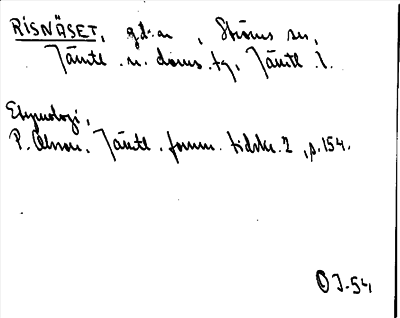 RISNÄSET, gd:a, Ströms sn,
Jämtl. n. doms. tg, Jämtl. l.
Etymologi,
P. Olsson. Jämtl. fornm. tidskr. 2, s. 154.
OJ-54